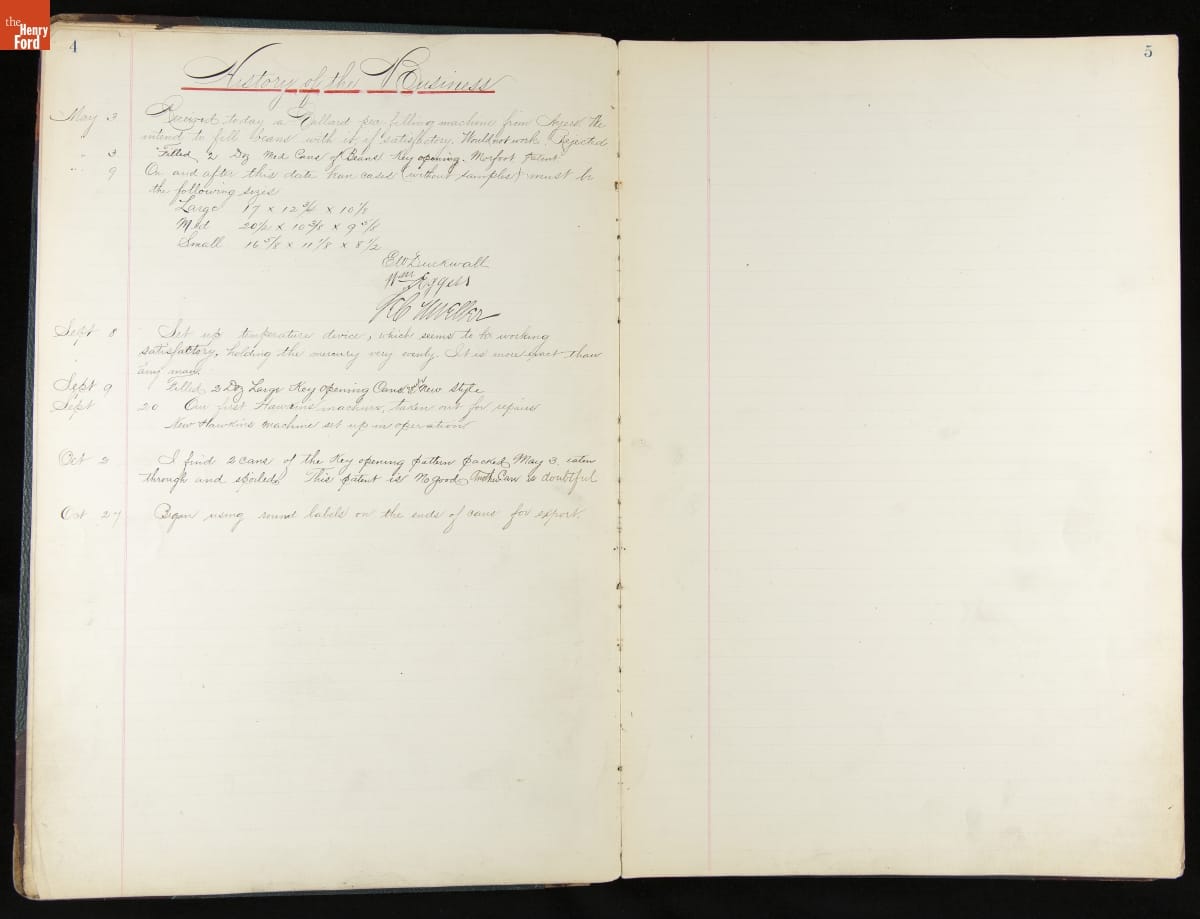 the Henry Ford
4
5
History of the Business
May 3 Received today a pea filling machine from Ayers. We
intend to fill beans with it, if satisfactory. Would not work Rejected
" 3 Filled 2 Doz Med Cans of Beans Key opening. patent
" 9 On and after this date bean cases (without samples) must be
the following sizes
Large 17 x 12 3/4 x 10 1/8
Med 20 1/2 x 10 3/8 x 9 5/8
Small 16 5/8 x 11 1/8 x 8 1/2
EW Duckwall
Wm
Mueller
Sept 8 Set up temperature device, which seems to be working
satisfactory, holding the mercury very evenly. It is more exact than
any man.
Sept 9 Filled 2 Doz Large Key opening Cans New style
Sept 20 Our first Hawkins machine, taken out for repairs
New Hawkins machine set up in operation
Oct 2 I find 2 cans of the Key opening pattern packed May 3. eaten
through and spoiled. This patent is No good Can is doubtful
Oct 27 Began using round labels on the ends of cans for export.